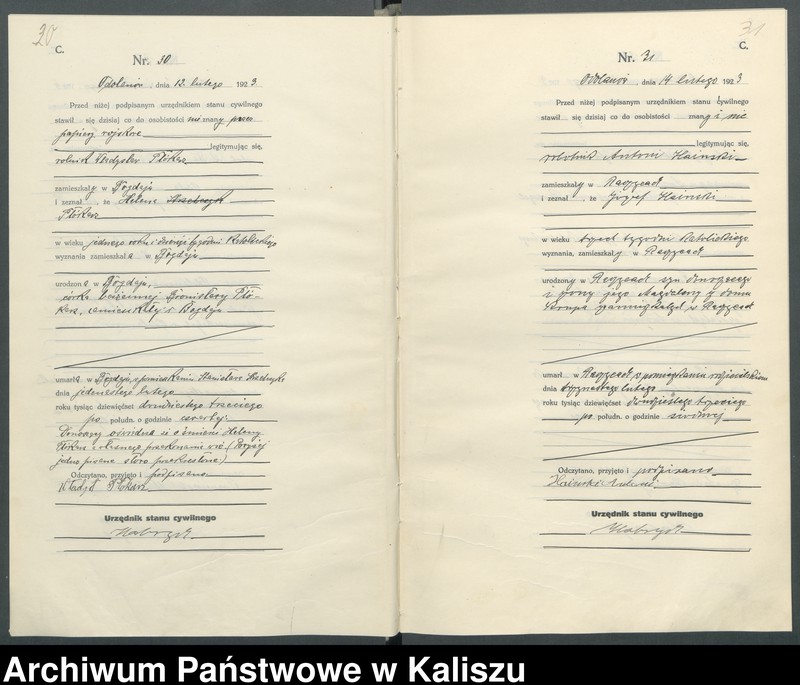 30
C.
Nr. 30
Odolanów, dnia 12. lutego 1923.
Przed niżej podpisanym urzędnikiem stanu cywilnego
stawił się dzisiaj co do osobistości nieznany przez
papiery wojskowe
legitymując się,
rolnik Władysław
zamieszkały w Bogdaju
i zeznał, że Helena
w wieku jednego roku i tygodni katolickiego
wyznania zamieszkała w Bogdaju
urodzona w Bogdaju,
córka Bronisławy
zamieszkałej w Bogdaju
umarła w Bogdaju, w pomieszkaniu Stanisława
dnia jedenastego lutego
roku tysiąc dziewięćset dwudziestego trzeciego
po połudn. o godzinie czwartej.
Donoszący oświadcza iż o śmierci Heleny
z własnego przekonania wie (Powyżej
jedno pisane słowo przekreślone)
Odczytano, przyjęto i podpisano
Urzędnik stanu cywilnego
31
C.
Nr. 31
Odolanów, dnia 14 lutego 1923
Przed niżej podpisanym urzędnikiem stanu cywilnego
stawił się dzisiaj co do osobistości znany i nie
legitymując się,
robotnik Antoni
zamieszkały w
i zeznał, że Józef
w wieku trzech tygodni katolickiego
wyznania, zamieszkały w
urodzony w syn donoszącego
i żony jego Magdaleny z domu
zamieszkałych w
umarł w w pomieszkaniu rodzicielskim
dnia trzynastego lutego
roku tysiąc dziewięćset dwudziestego trzeciego
po połudn. o godzinie siódmej
Odczytano, przyjęto i podpisano
Urzędnik stanu cywilnego
Archiwum Państwowe w Kaliszu